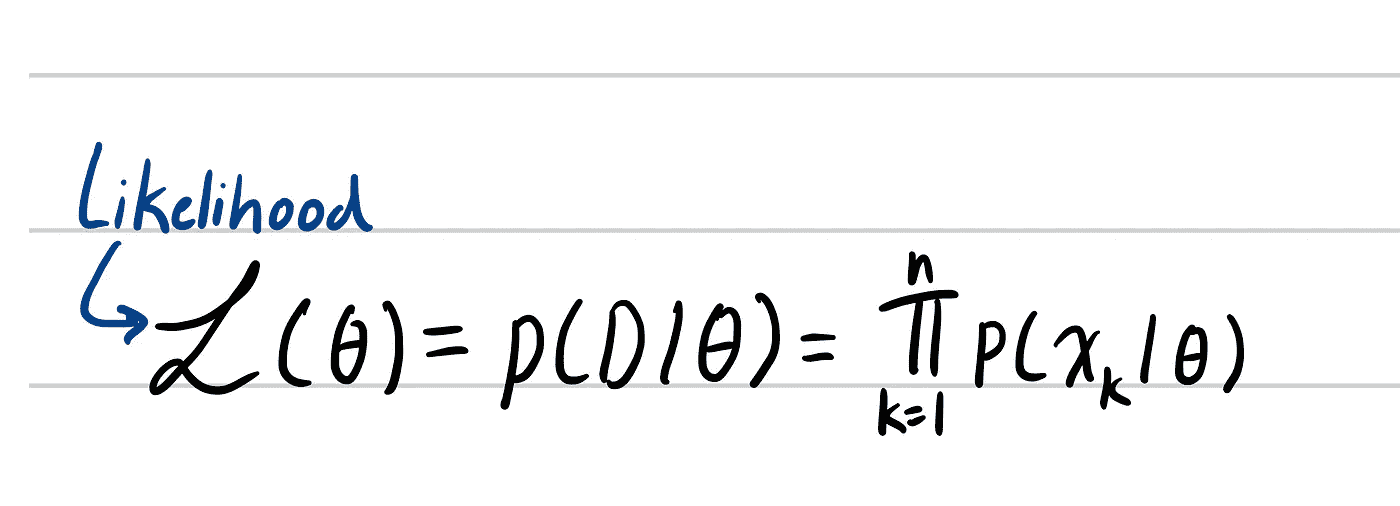 Likelihood
ℒ(θ) = p(D|θ) = ∏_{k=1}^{n} p(x_k|θ)